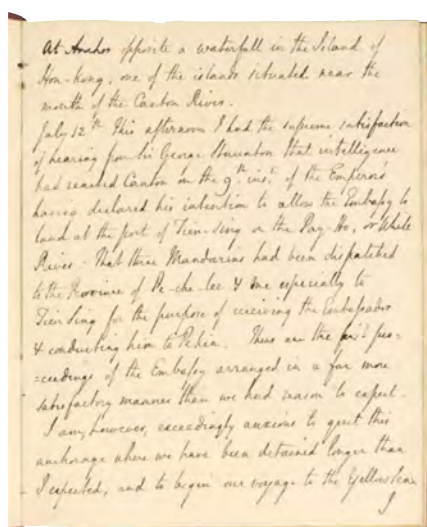 At Anchor opposite a waterfall in the Island of
Hon-kong, one of the islands situated near the
mouth of the Canton River.
July 12th This afternoon I had the supreme satisfaction
of hearing from Sir George Staunton that intelligence
had reached Canton on the 9th inst. of the Emperor's
having declared his intention to allow the Embassy to
land at the port of Tien-sing on the Pay-Ho, or White
River - That three Mandarins had been dispatched
to the Province of Pe-che-lee & one especially to
Tien Sing for the purpose of receiving the Embassador
& conducting him to Pekin. Thus are the pro=
=ceedings of the Embassy arranged in a far more
satisfactory manner than we had reason to expect.
I am, however, exceedingly anxious to quit this
anchorage where we have been detained longer than
I expected, and to begin our voyage to the Yellow Sea